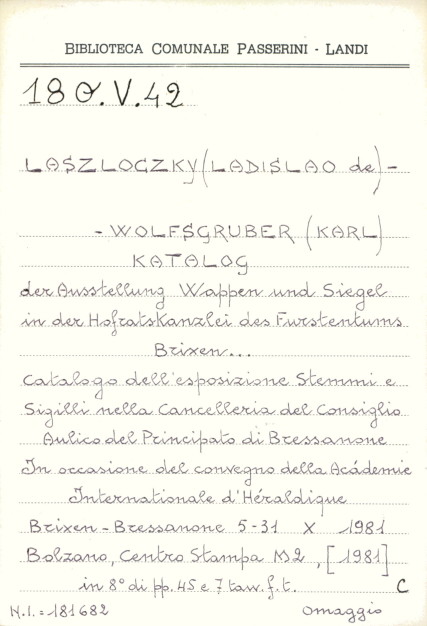 BIBLIOTECA COMUNALE PASSERINI - LANDI
18 O.V.42
LASZLOCZKY (LADISLAO de) -
- WOLFSGRUBER (KARL)
KATALOG
der Ausstellung Wappen und Siegel
in der Hofratskanzlei des Furstentums
Brixen...
Catalogo dell'esposizione Stemmi e
Sigilli nella Cancelleria del Consiglio
Aulico del Principato di Bressanone
In occasione del convegno della Académie
Internationale d'Héraldique
Brixen - Bressanone 5-31 X 1981
Bolzano, Centro Stampa M2, [1981]
in 8° di pp. 45 e 7 taw. f. t. C
N.I. = 181682 omaggio